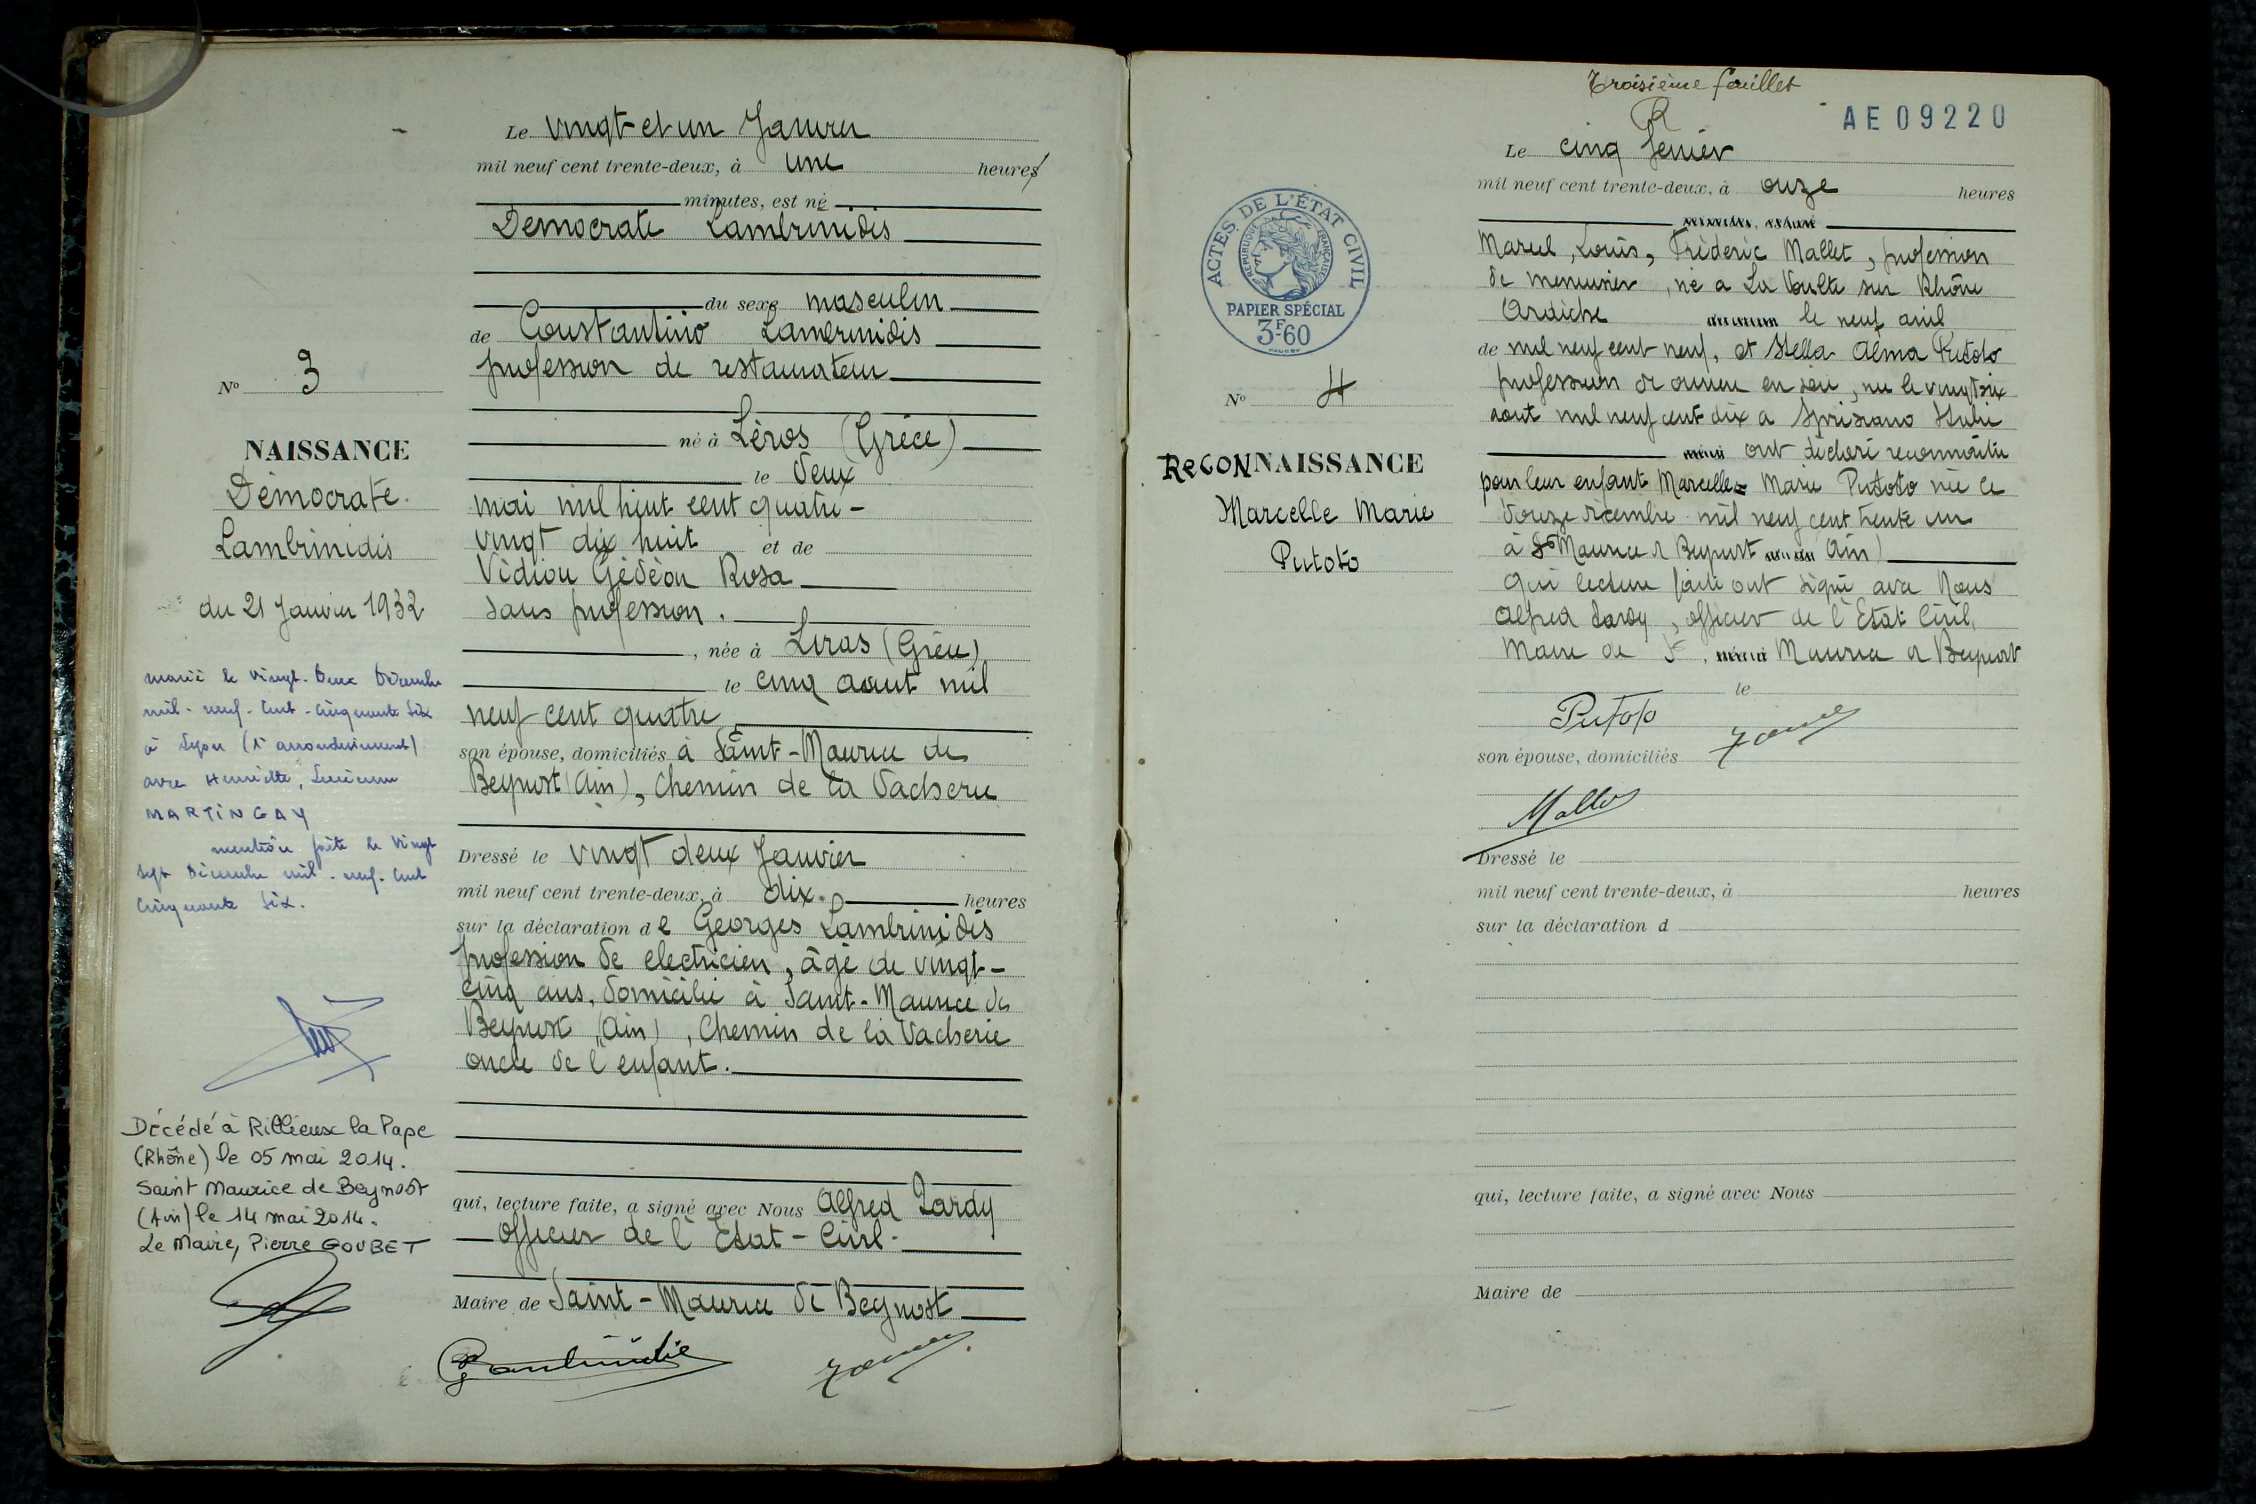 Le vingt et un Janvier
mil neuf cent trente-deux, à une heures
minutes, est né
Démocrate Lambrinidis
du sexe masculin
de Constantino Lambrinidis
profession de restaurateur
né à Léros (Grèce)
le deux
mai mil huit cent quatre-
vingt dix huit et de
Vidiou Gédéon Rosa
sans profession.
, née à Leros (Grèce)
le cinq aout mil
neuf cent quatre
son épouse, domiciliés à Saint-Maurice de
Beynost (Ain), Chemin de la Vacherie
Dressé le vingt deux Janvier
mil neuf cent trente-deux, à dix. heures
sur la déclaration de Georges Lambrinidis
profession de electricien, âgé de vingt-
cinq ans, domicilié à Saint-Maurice de
Beynost (Ain), Chemin de la Vacherie
oncle de l'enfant.
qui, lecture faite, a signé avec Nous Alfred Dardy
officier de l'Etat-Civil.
Maire de Saint-Maurice de Beynost
No 3
NAISSANCE
Démocrate.
Lambrinidis
du 21 Janvier 1932
marié le vingt-deux Décembre
mil-neuf-cent-cinquante six
à Lyon (1r arrondissement)
avec Henriette, Lucienne
MARTINGAY
mention faite le vingt
sept Décembre mil-neuf-cent
cinquante six.
Décédé à Rillieux la Pape
(Rhône) le 05 mai 2014.
Saint Maurice de Beynost
(Ain) le 14 mai 2014.
Le Maire, Pierre GOUBET
Troisième feuillet
AE 09220
Le cinq fevrier
mil neuf cent trente-deux, à onze heures
Marcel, Louis, Fréderic Mallet, profession
de menuisier, né a La Voulte sur Rhône
Ardèche le neuf avril
de mil neuf cent neuf, et Stella Alma Putoto
profession de ouvriere en soie, née le vingt six
aout mil neuf cent dix a Italie
ont déclaré reconnaitre
pour leur enfant Marcelle Marie Putoto née le
douze décembre mil neuf cent trente un
à St Maurice de Beynost (Ain)
qui lecture faite ont signé avec Nous
Alfred Dardy, officier de l'Etat Civil,
Maire de St Maurice de Beynost
le
Putoto
son épouse, domiciliés
Mallet
Dressé le
mil neuf cent trente-deux, à heures
sur la déclaration d
qui, lecture faite, a signé avec Nous
Maire de
ACTES DE L'ÉTAT CIVIL
RÉPUBLIQUE FRANÇAISE
PAPIER SPÉCIAL
3F60
No 4
RECONNAISSANCE
Marcelle Marie
Putoto